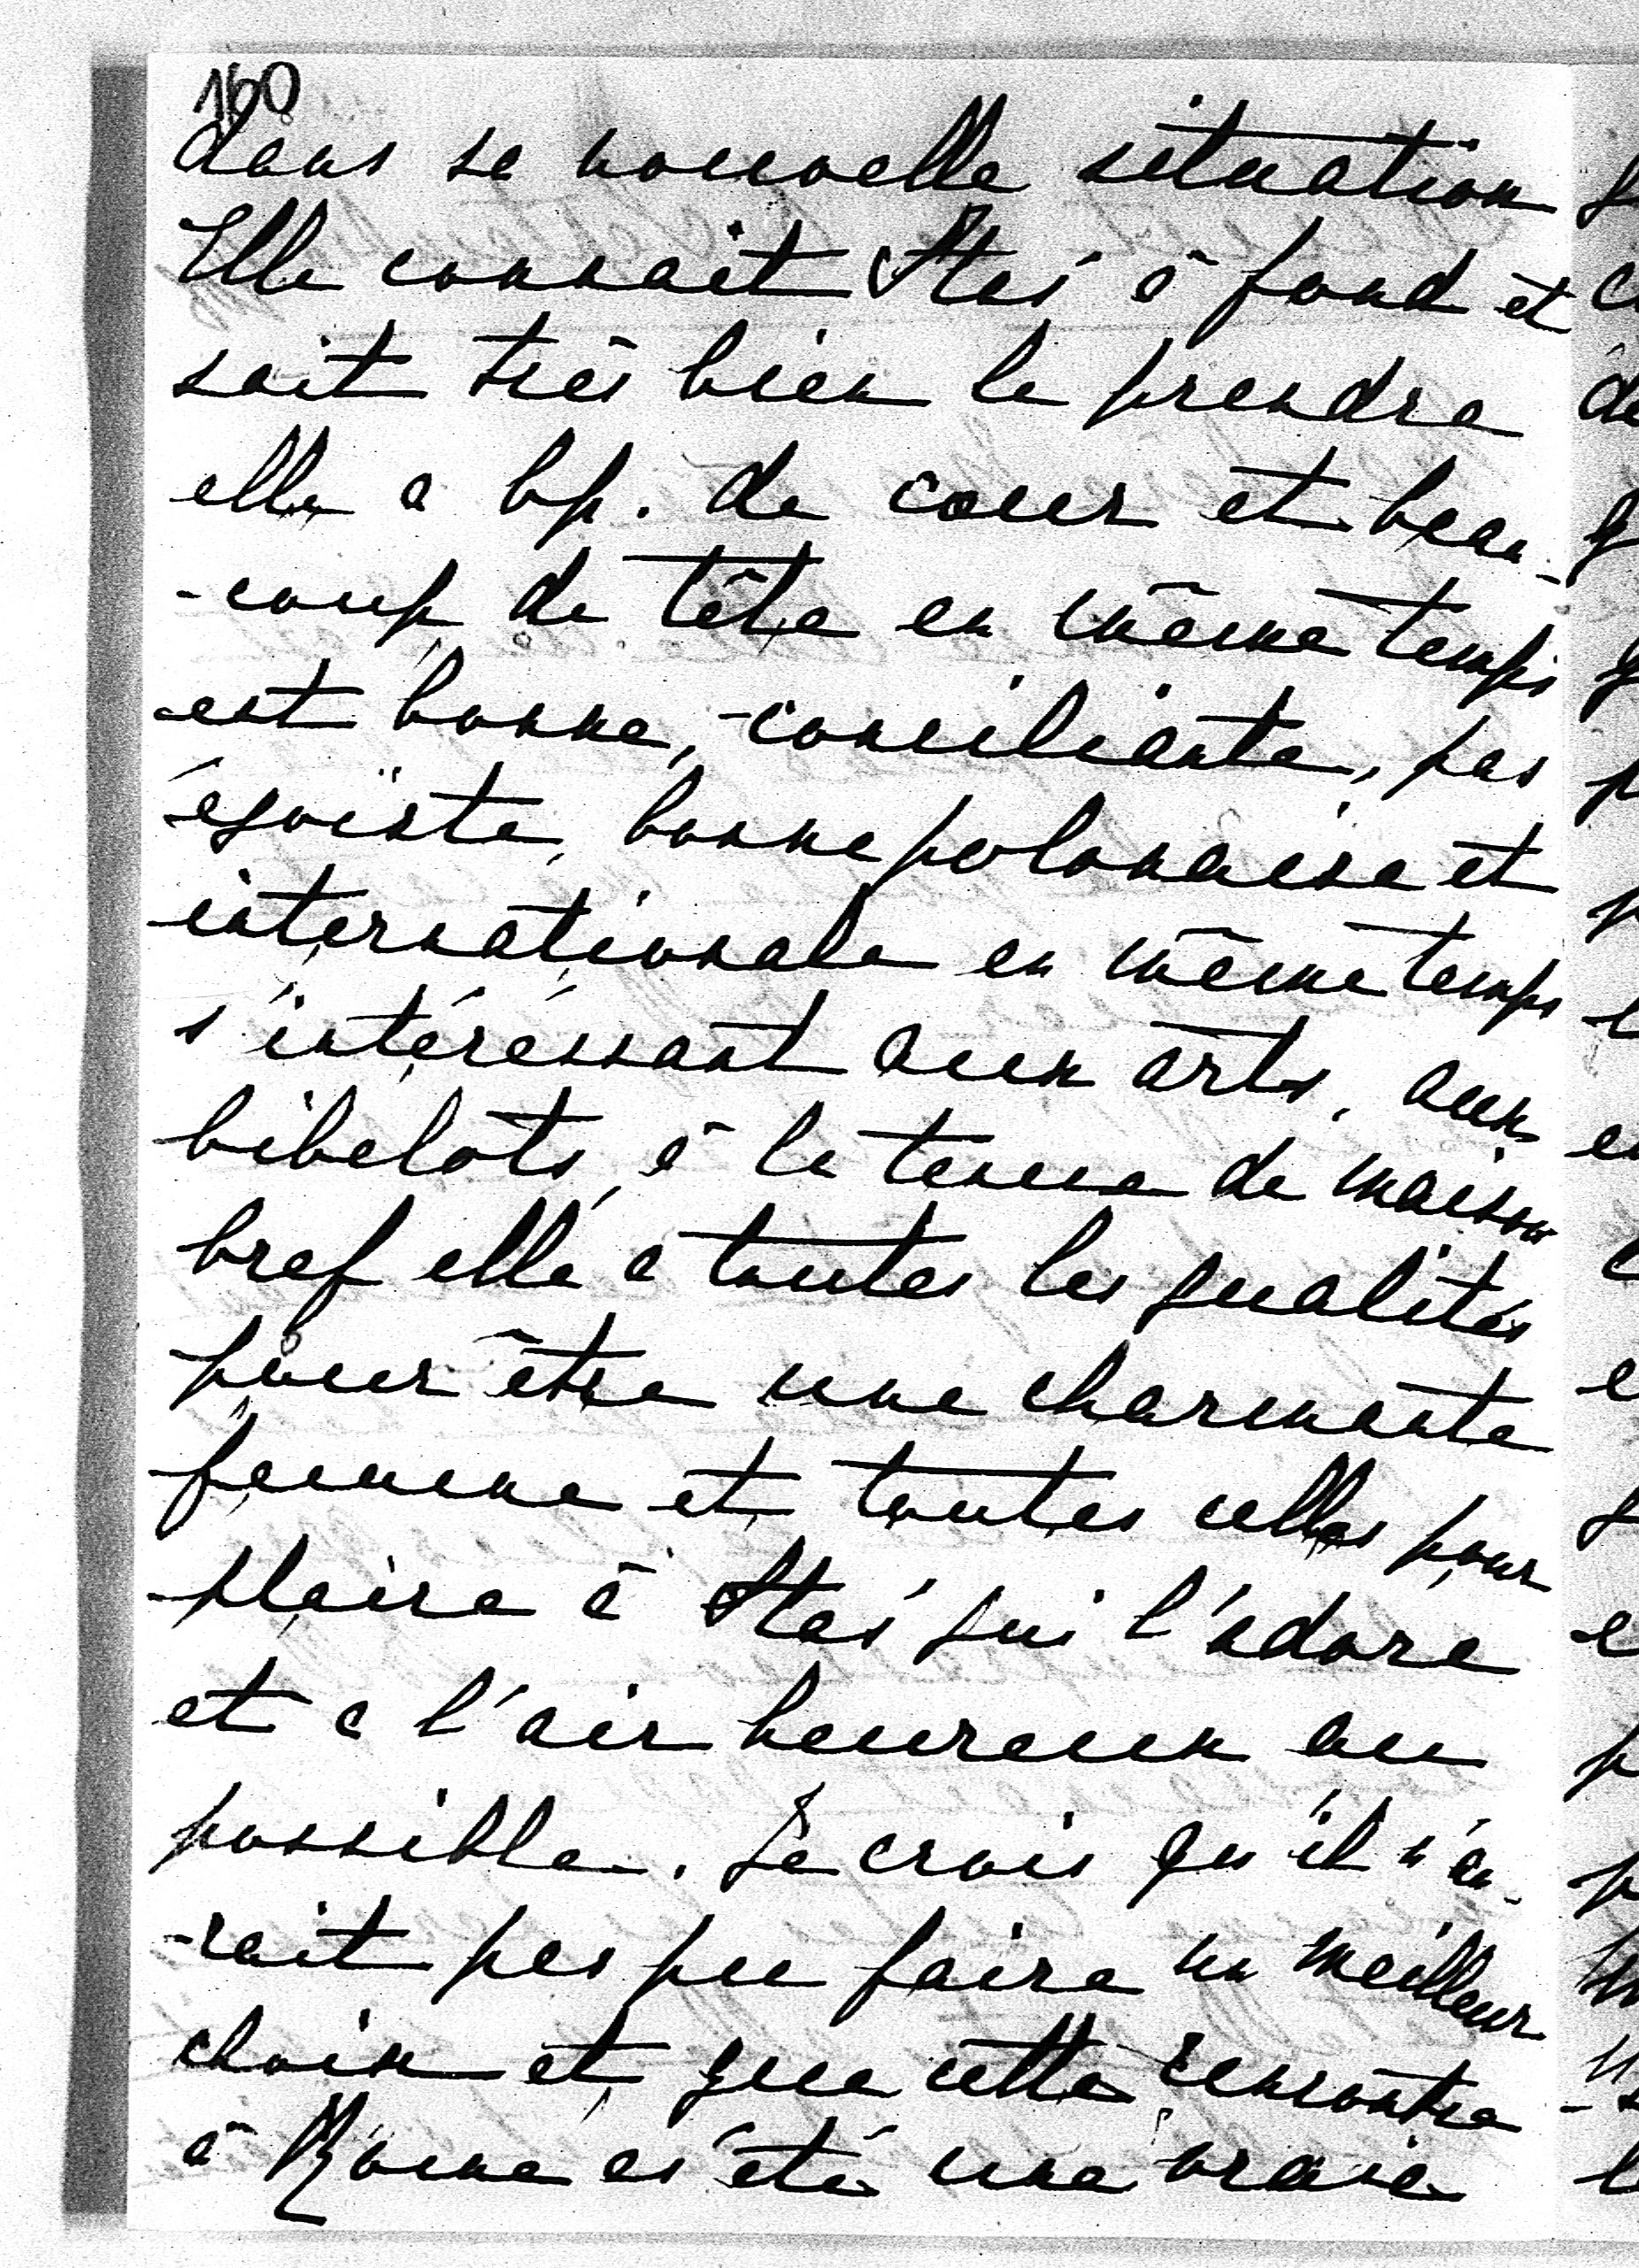 160
dans sa nouvelle situation
Elle connait Staś à fond et
sait très bien le prendre
elle a bp. de coeur et beau-
-coup de tête en même temps
est bonne, conciliante, pas
égoïste, bonne polonaise et
internationale en même temps
s'intéressant aux arts, aux
bibelots, à la tenue de maison
bref elle a toutes les qualités
pour être une charmante
femme et toutes celles pour
plaire à Staś qui l'adore
et a l'air heureux au
possible. Je crois qu'il n'au-
-rait pas pu faire un meilleur
choix et que cette rencontre
à Rome a été une vraie